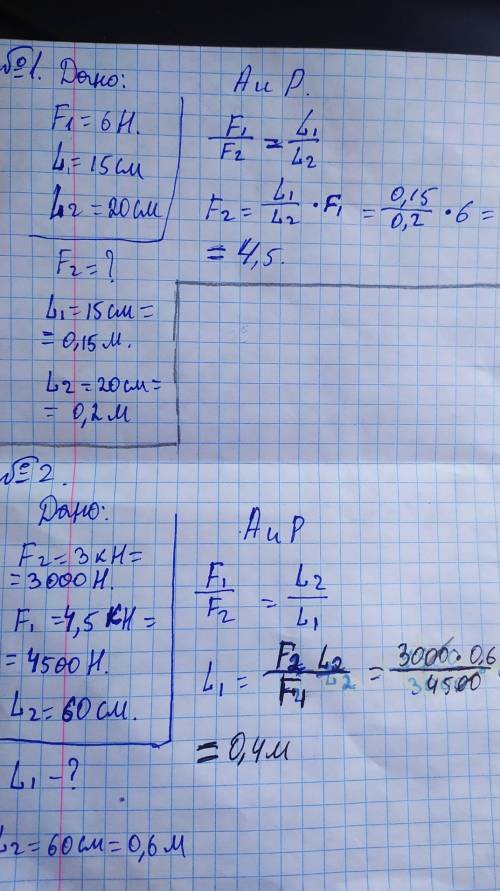 №1. Дано:
F1 = 6 Н.
L1 = 15 см
L2 = 20 см
F2 = ?
L1 = 15 см =
= 0,15 м.
L2 = 20 см =
= 0,2 м
А и Р.
F1/F2 = L1/L2
F2 = L1/L2 • F1 = 0,15/0,2 • 6 =
= 4,5.
№2.
Дано:
F2 = 3 кН =
= 3000 Н.
F1 = 4,5 кН =
= 4500 Н.
L2 = 60 см.
L1 - ?
L2 = 60 см = 0,6 м
А и Р
F1/F2 = L2/L1
L1 = F2 L2/F1 = 3000 • 0,6/4500
= 0,4 м